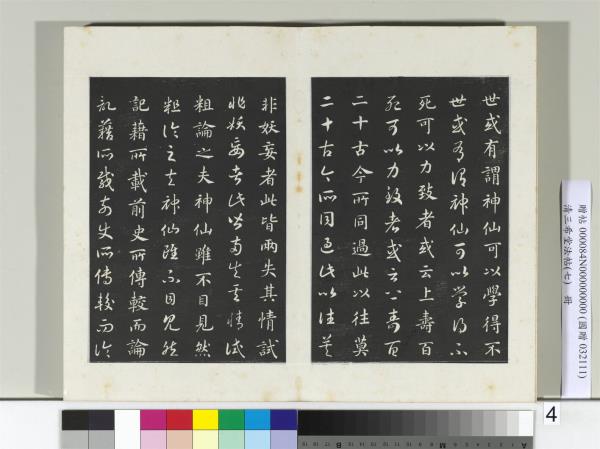 世或有謂神仙可以學得不
世或有謂神仙可以学得不
死可以力致者或云上壽百
死可以力致者或云上壽百
二十古今所同過此以往莫
二十古今所同過此以往莫
非妖妄者此皆兩失其情試
非妖妄者此皆兩失其情試
粗論之夫神仙雖不目見然
粗論之夫神仙雖不目見然
記籍所載前史所傳較而論
記籍所載前史所傳較而論
贈帖 000084N000000000 (國贈 032111)
清三希堂法帖(七) 冊
4